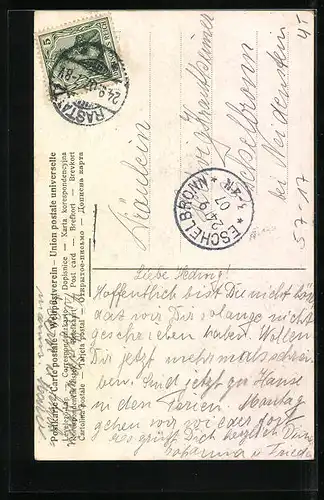 DEUTSCHES REICH
5
RASTATT
24.9.07. 7-8V
Postkarte — Carte postale — Weltpostverein — Union postale universelle
Dopisnice — Karta korespondencyjna
Brefkort — Post card — Brevkort
Cartolina postale — Tarjeta Postal — Открытое письмо — Дописна карта
Fräulein
Eschelbronn
bei Neidenstein
ESCHELBRONN
24 9 07
57-17
Liebe Hedwig!
Hoffentlich bist Du nicht bös
daß wir Dir so lange nicht
geschrieben haben. Wollen
Dir jetzt mehrmals schrei-
ben. Sind jetzt zu Hause
in den Ferien. Montag
gehen wir wieder fort
es grüßt Dich herzlich Deine
Johanna u Frieda